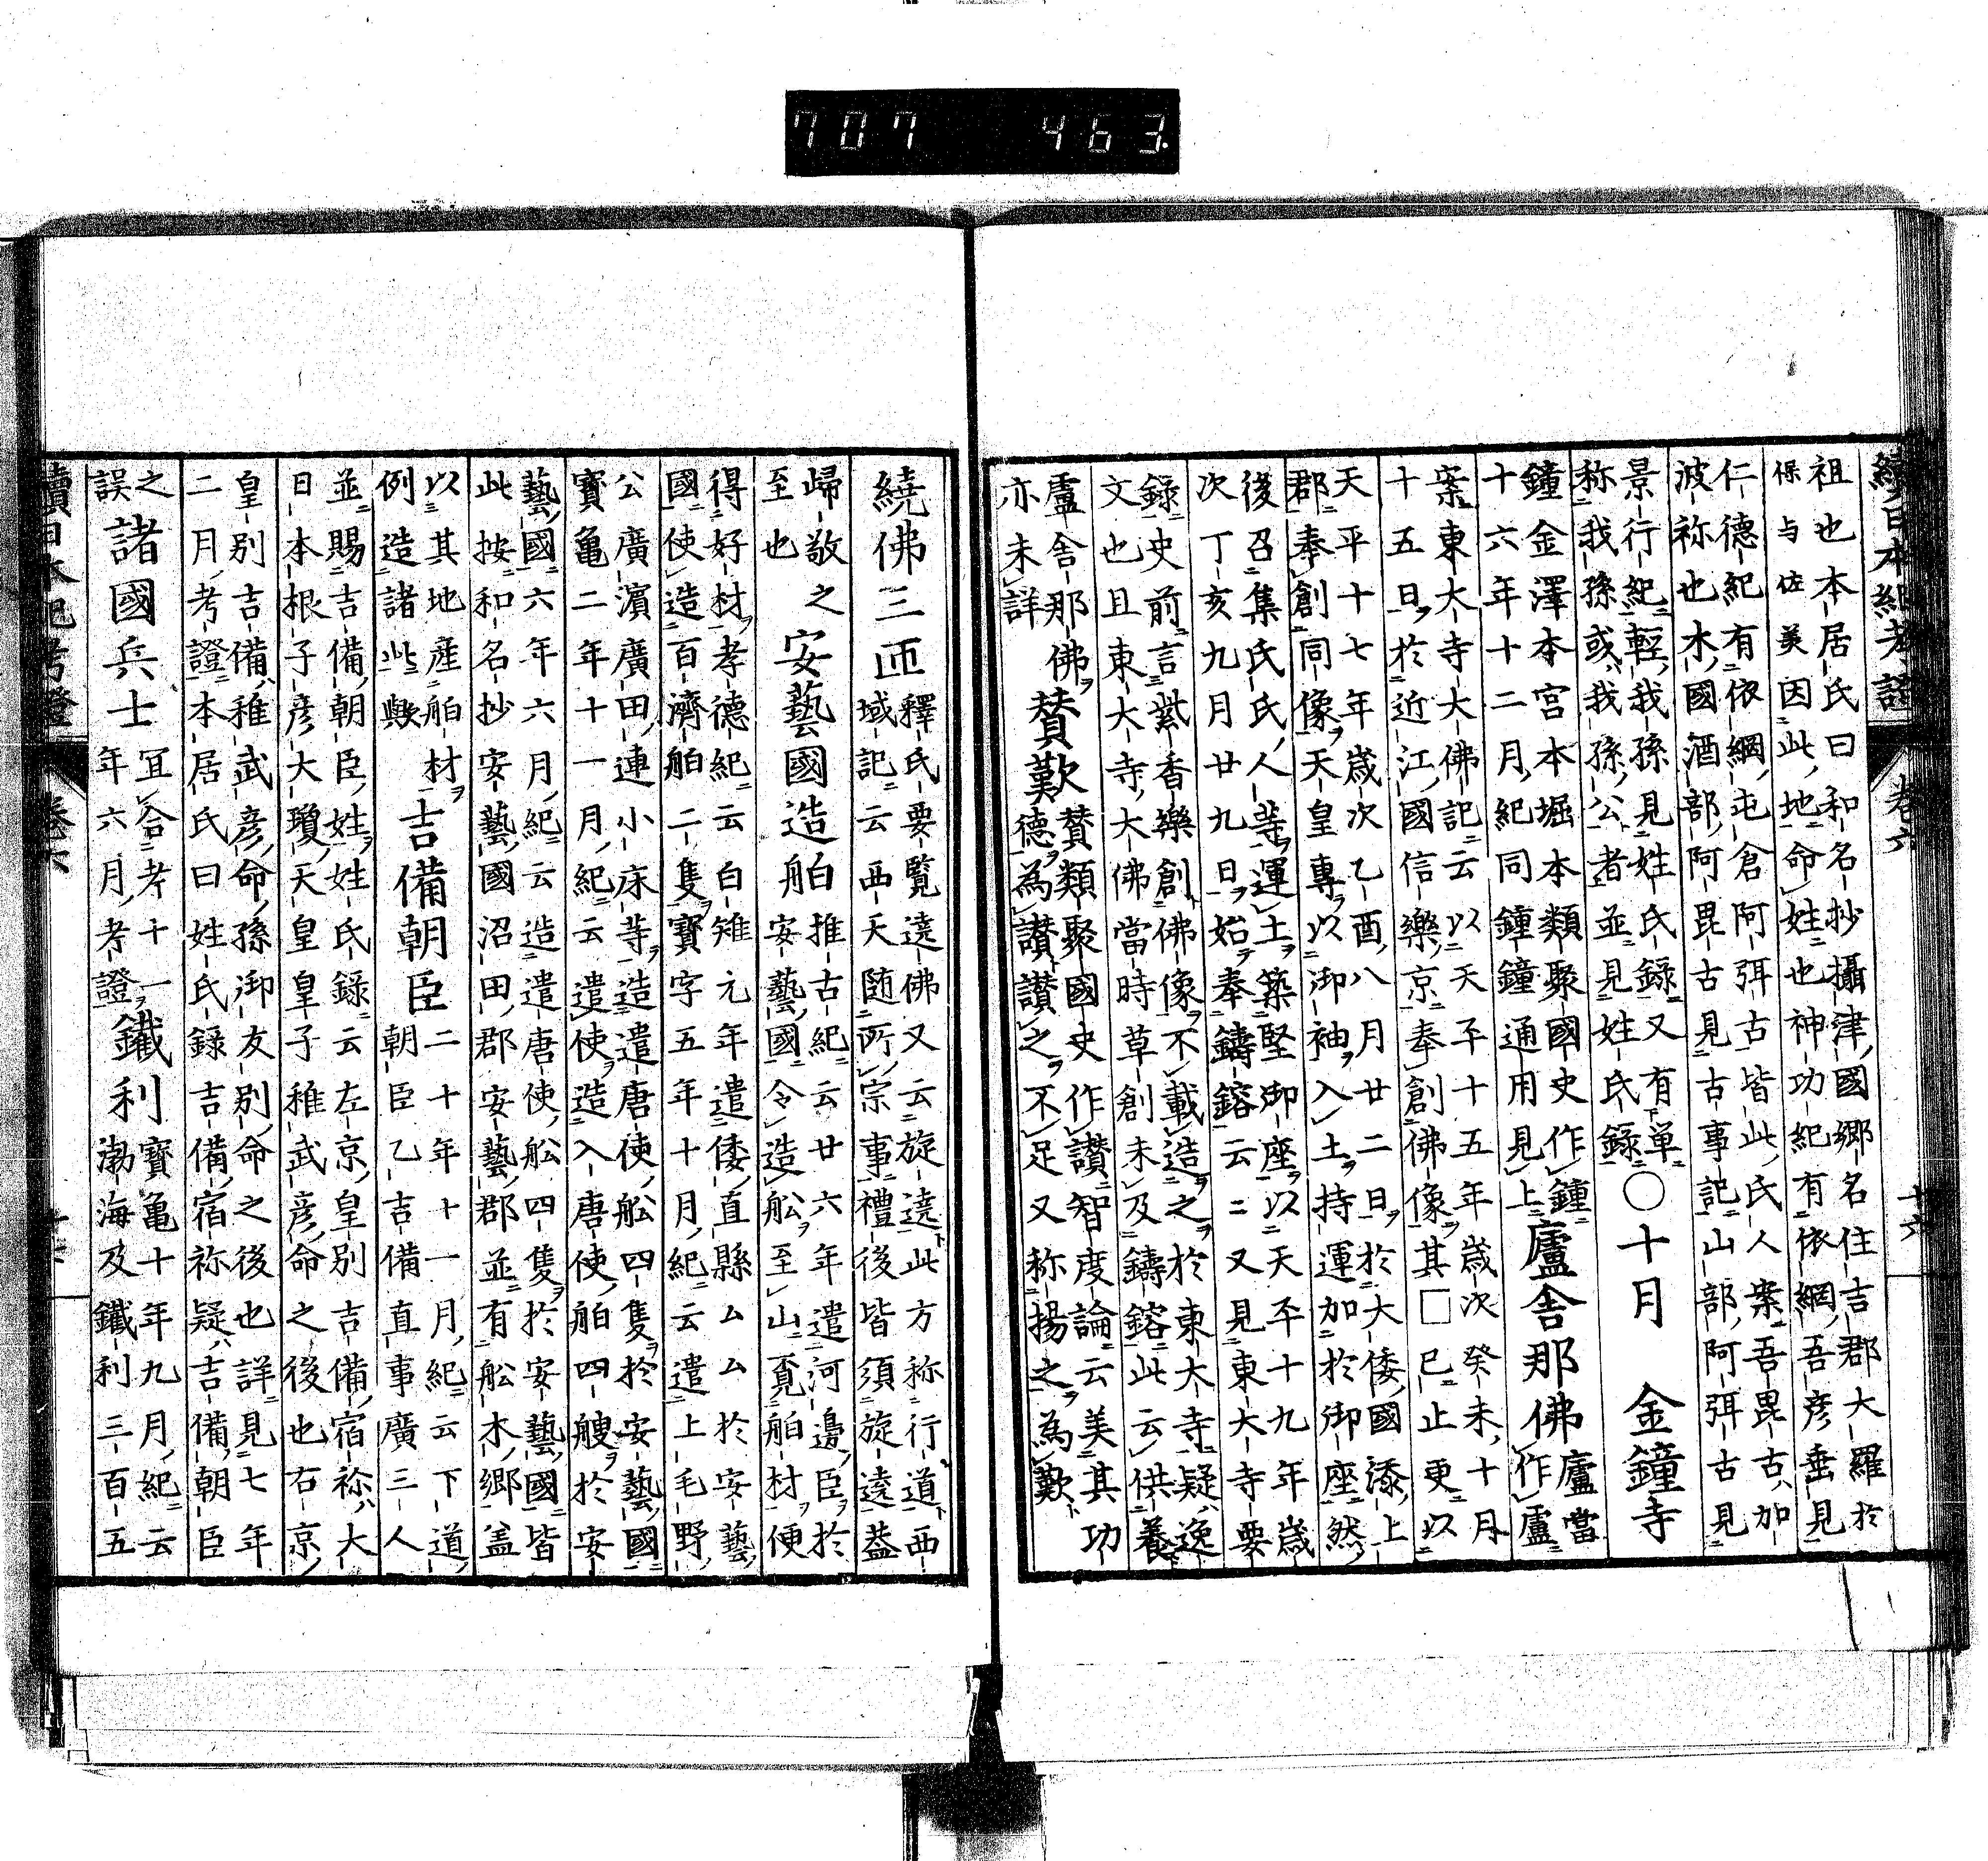 707 463
續日本紀考證 卷六 十六
祖也本居氏曰和名抄攝津國郷名住吉郡大羅於
保与佐美因此地命姓也神功紀有依網吾彦垂見
仁德紀有依網屯倉阿弭古皆此氏人案吾毘古加
波祢也水國酒部阿毘古見古事記山部阿弭古見
景行紀輕我孫見姓氏錄又有単
称我孫或我孫公者並見姓氏錄
○十月 金鐘寺
鐘金澤本宮本堀本類聚國史作鍾
十六年十二月紀同鐘鍾通用見上
廬舍那佛
廬當作盧
案東大寺大佛記云以天平十五年歳次癸未十月
十五日於近江國信樂京奉創佛像其□已止更以
天平十七年歳次乙酉八月廿二日於大倭國添上
郡奉創同像天皇專以御袖入土持運加於御座然
後召集氏氏人等運土築堅御座以天平十九年歳
次丁亥九月廿九日始奉鑄鎔云二又見東大寺要
錄史前言紫香樂創佛像不載造之於東大寺疑逸
文也且東大寺大佛當時草創未及鑄鎔此云供養
盧舍那佛
亦未詳
賛歎
賛類聚國史作讃智度論云美其功
德為讃讃之不足又称揚之為歎
繞佛三匝
釋氏要覽遶佛又云旋遶此方称行道西
域記云西天随所宗事禮後皆須旋遶葢
歸敬之
至也
安藝國造舶
推古紀云廿六年遣河邊臣於
安藝國令造舩至山覔舶材便
得好材孝德紀云白雉元年遣倭直縣ムム於安藝
國使造百濟舶二隻寶字五年十月紀云遣上毛野
公廣濱廣田連小床等造遣唐使舩四隻於安藝國
寳亀二年十一月紀云遣使造入唐使舶四艘於安
藝國六年六月紀云造遣唐使舩四隻於安藝國皆
此按和名抄安藝國沼田郡安藝郡並有舩木郷盖
以其地産舶材
例造諸此歟
吉備朝臣
二十年十一月紀云下道
朝臣乙吉備直事廣三人
並賜吉備朝臣姓姓氏錄云左京皇別吉備宿祢大
日本根子彦大瓊天皇皇子稚武彦命之後也右京
皇別吉備稚武彦命孫御友別命之後也詳見七年
二月考證本居氏曰姓氏錄吉備宿祢疑吉備朝臣
之
誤
諸國兵士
宜合考十一
年六月考證
鐵利
寶亀十年九月紀云
渤海及鐵利三百五
續日本紀考證 卷六